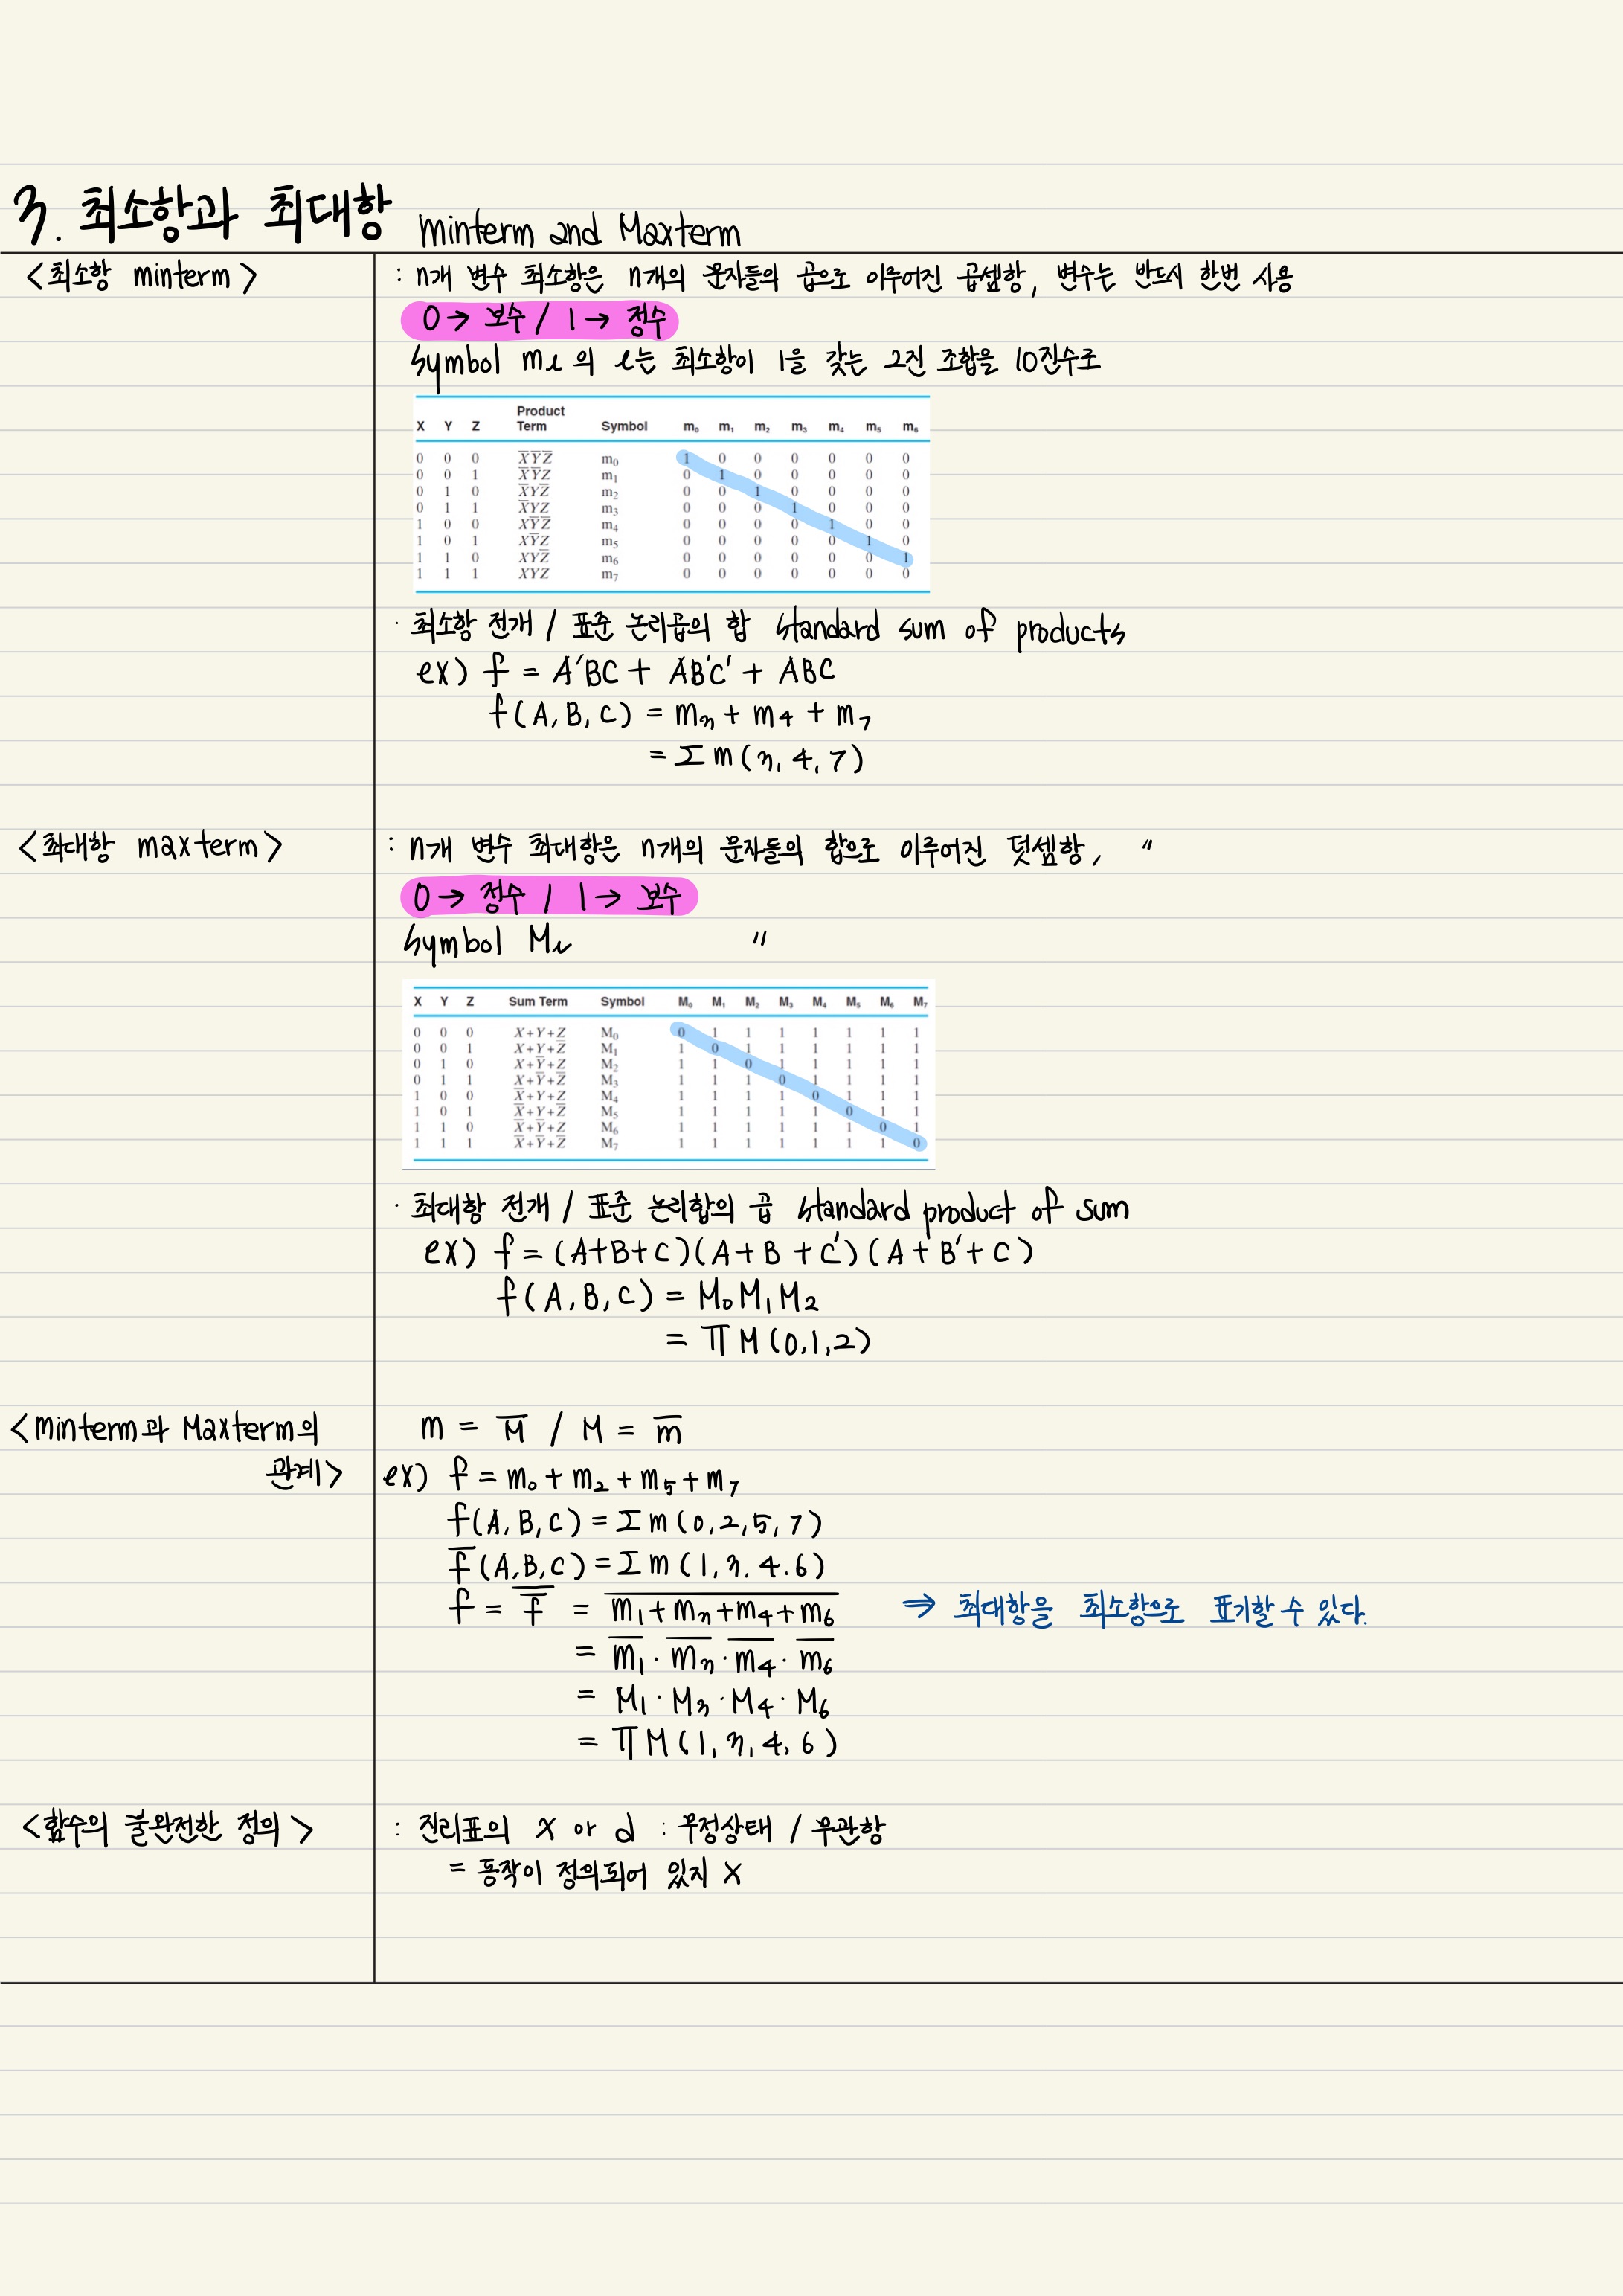 3. 최소항과 최대항 minterm and Maxterm
<최소항 minterm>
: n개 변수 최소항은 n개의 문자들의 곱으로 이루어진 곱셈항, 변수는 반드시 한번 사용
0 → 보수 / 1 → 정수
symbol mi의 i는 최소항이 1을 갖는 2진 조합을 10진수로
X Y Z Product Term Symbol m₀ m₁ m₂ m₃ m₄ m₅ m₆
0 0 0 X̅Y̅Z̅ m₀ 1 0 0 0 0 0 0
0 0 1 X̅Y̅Z m₁ 0 1 0 0 0 0 0
0 1 0 X̅YZ̅ m₂ 0 0 1 0 0 0 0
0 1 1 X̅YZ m₃ 0 0 0 1 0 0 0
1 0 0 XY̅Z̅ m₄ 0 0 0 0 1 0 0
1 0 1 XY̅Z m₅ 0 0 0 0 0 1 0
1 1 0 XYZ̅ m₆ 0 0 0 0 0 0 1
1 1 1 XYZ m₇ 0 0 0 0 0 0 0
· 최소항 전개 / 표준 논리곱의 합 standard sum of products
ex) f = A'BC + AB'C' + ABC
f(A, B, C) = m₃ + m₄ + m₇
= Σ m(3, 4, 7)
<최대항 maxterm>
: n개 변수 최대항은 n개의 문자들의 합으로 이루어진 덧셈항, "
0 → 정수 / 1 → 보수
symbol Mi "
X Y Z Sum Term Symbol M₀ M₁ M₂ M₃ M₄ M₅ M₆ M₇
0 0 0 X+Y+Z M₀ 0 1 1 1 1 1 1 1
0 0 1 X+Y+Z̅ M₁ 1 0 1 1 1 1 1 1
0 1 0 X+Y̅+Z M₂ 1 1 0 1 1 1 1 1
0 1 1 X+Y̅+Z̅ M₃ 1 1 1 0 1 1 1 1
1 0 0 X̅+Y+Z M₄ 1 1 1 1 0 1 1 1
1 0 1 X̅+Y+Z̅ M₅ 1 1 1 1 1 0 1 1
1 1 0 X̅+Y̅+Z M₆ 1 1 1 1 1 1 0 1
1 1 1 X̅+Y̅+Z̅ M₇ 1 1 1 1 1 1 1 0
· 최대항 전개 / 표준 논리합의 곱 standard product of sum
ex) f = (A+B+C)(A+B+C')(A+B'+C)
f(A, B, C) = M₀M₁M₂
= Π M(0,1,2)
<minterm과 Maxterm의
관계>
m = M̅ / M = m̅
ex) f = m₀ + m₂ + m₅ + m₇
f(A, B, C) = Σ m(0, 2, 5, 7)
f̅(A, B, C) = Σ m(1, 3, 4. 6)
f = f̿ = m̅₁̅+̅m̅₃̅+̅m̅₄̅+̅m̅₆̅ ⇒ 최대항을 최소항으로 표기할 수 있다.
= m̅₁ · m̅₃ · m̅₄ · m̅₆
= M₁ · M₃ · M₄ · M₆
= Π M(1, 3, 4, 6)
<함수의 불완전한 정의>
: 진리표의 X or d : 무정상태 / 무관항
= 동작이 정의되어 있지 X